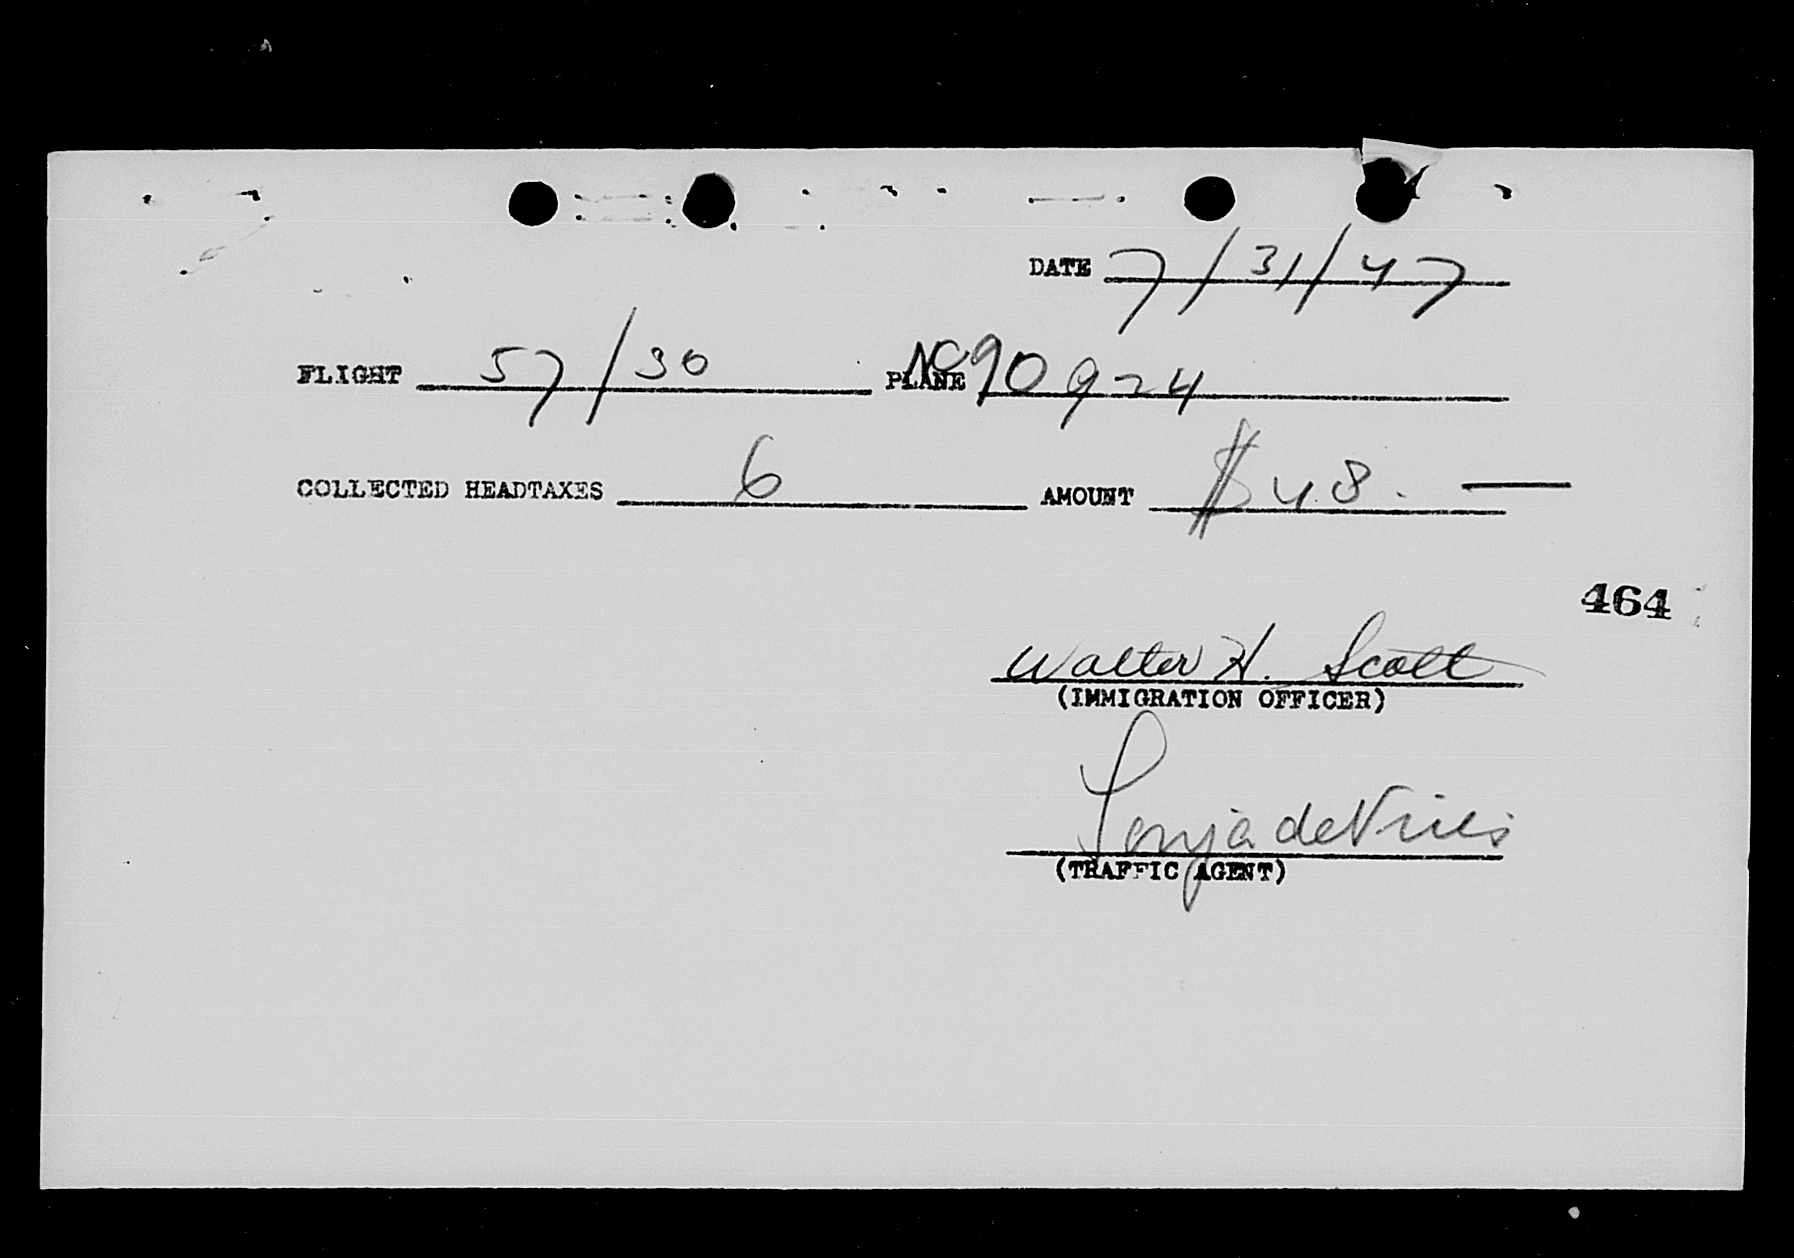 DATE 7/31/47
FLIGHT 57/30 PLANE NC90924
COLLECTED HEADTAXES 6 AMOUNT $48. —
464
Walter H. Scott
(IMMIGRATION OFFICER)
Sonja deVries
(TRAFFIC AGENT)